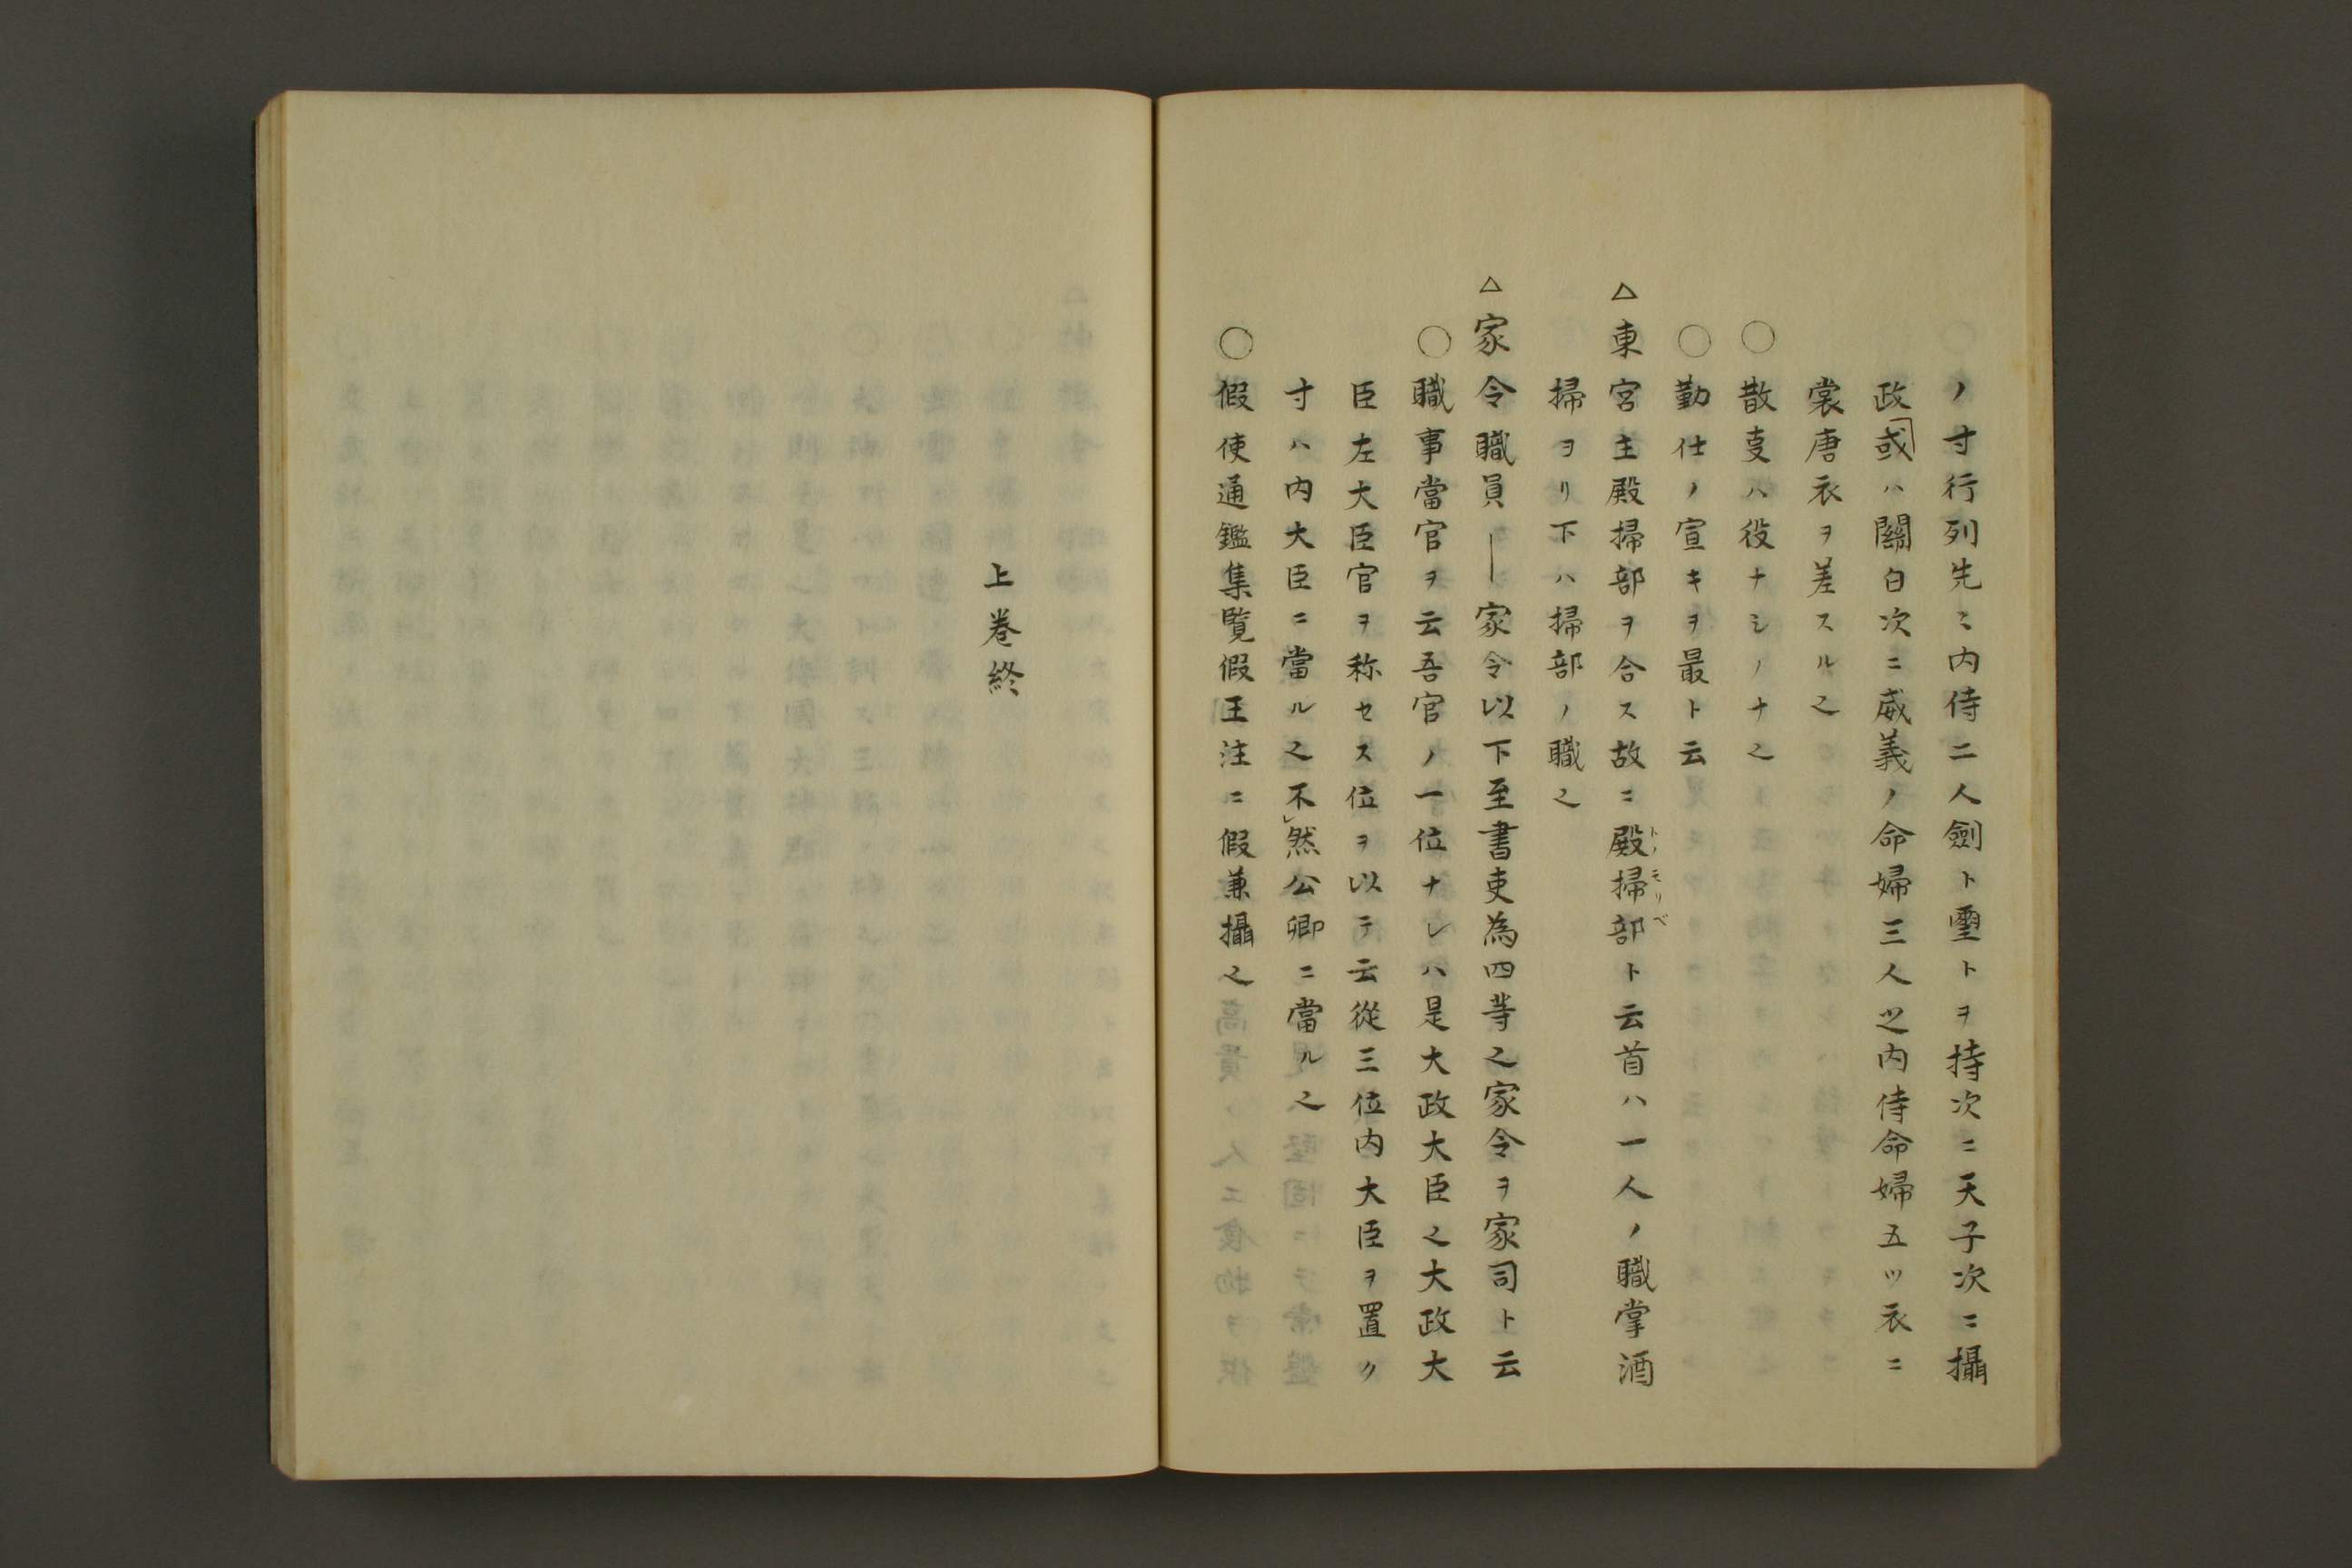 ノ寸行列先ニ内侍二人劍ト璽トヲ持次ニ天子次ニ攝
政或ハ關白次ニ威義ノ命婦三人之内侍命婦五ツ衣ニ
裳唐衣ヲ差スル之
○散㕝ハ役ナシノナ之
○勤仕ノ宣キヲ最ト云
△東宮主殿掃部ヲ合ス故ニ殿掃部ト云首ハ一人ノ職掌酒
トノモリベ
掃ヲリ下ハ掃部ノ職之
△家令職員―家令以下至書吏為四等之家令ヲ家司ト云
○職事當官ヲ云吾官ノ一位ナレハ是大政大臣之大政大
臣左大臣官ヲ称セス位ヲ以テ云從三位内大臣ヲ置ク
寸ハ内大臣ニ當ル之不レ然公卿ニ當ル之
○假使通鑑集覧假王注ニ假兼攝之
上巻終